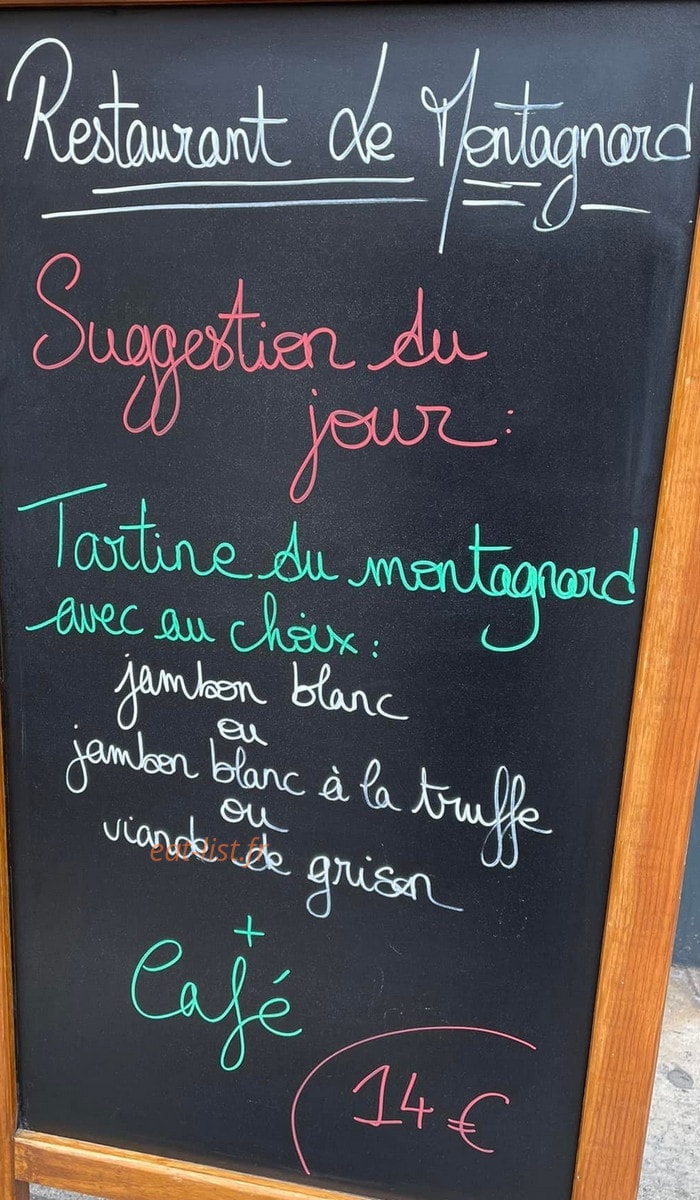 Restaurant Le Montagnard
Suggestion du
jour :
Tartine du montagnard
avec au choix :
jambon blanc
ou
jambon blanc à la truffe
ou
viande de grison
eat-list.fr
+
Café
14 €